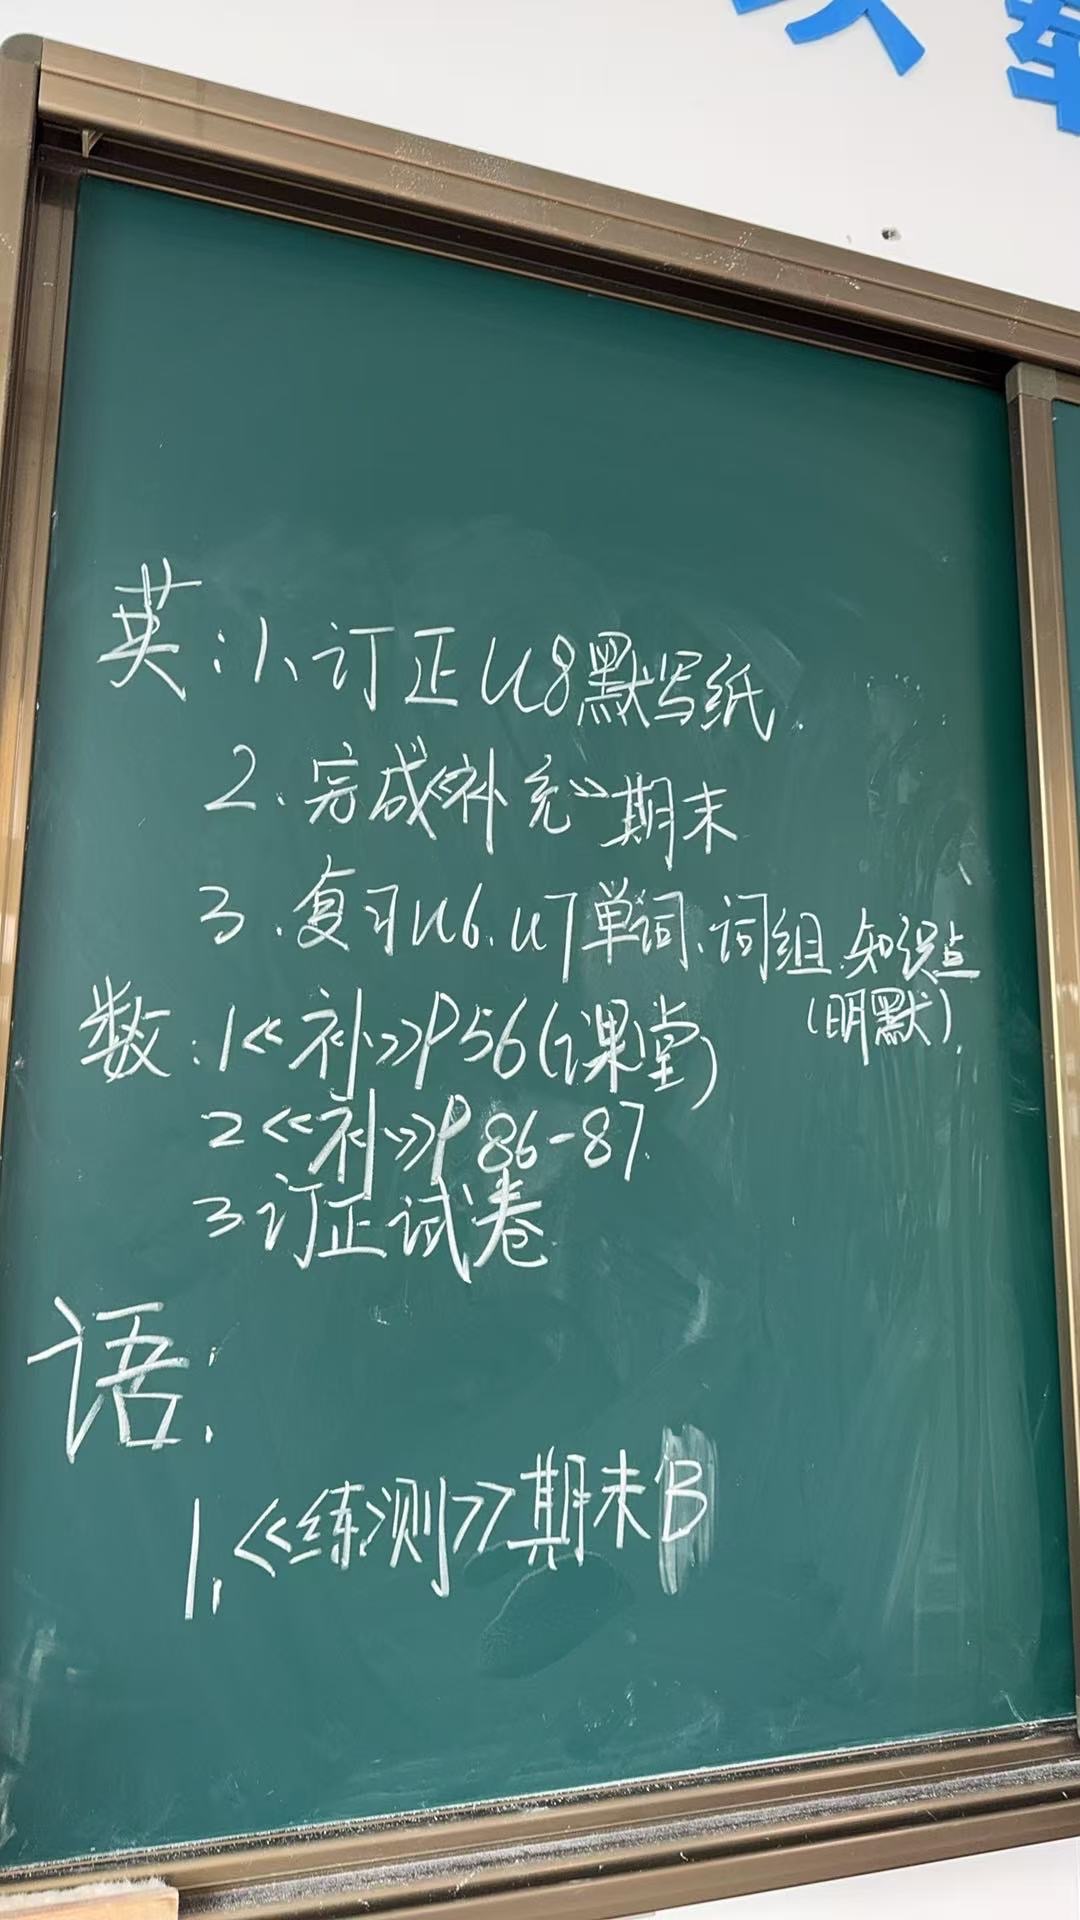 英:1、订正U8默写纸.
2.完成《补充》期末
3.复习U6.U7单词、词组.知识点
(明默).
数:1《补》P56(课堂)
2《补》P86-87.
3.订正试卷
语:
1.《练测》期末B